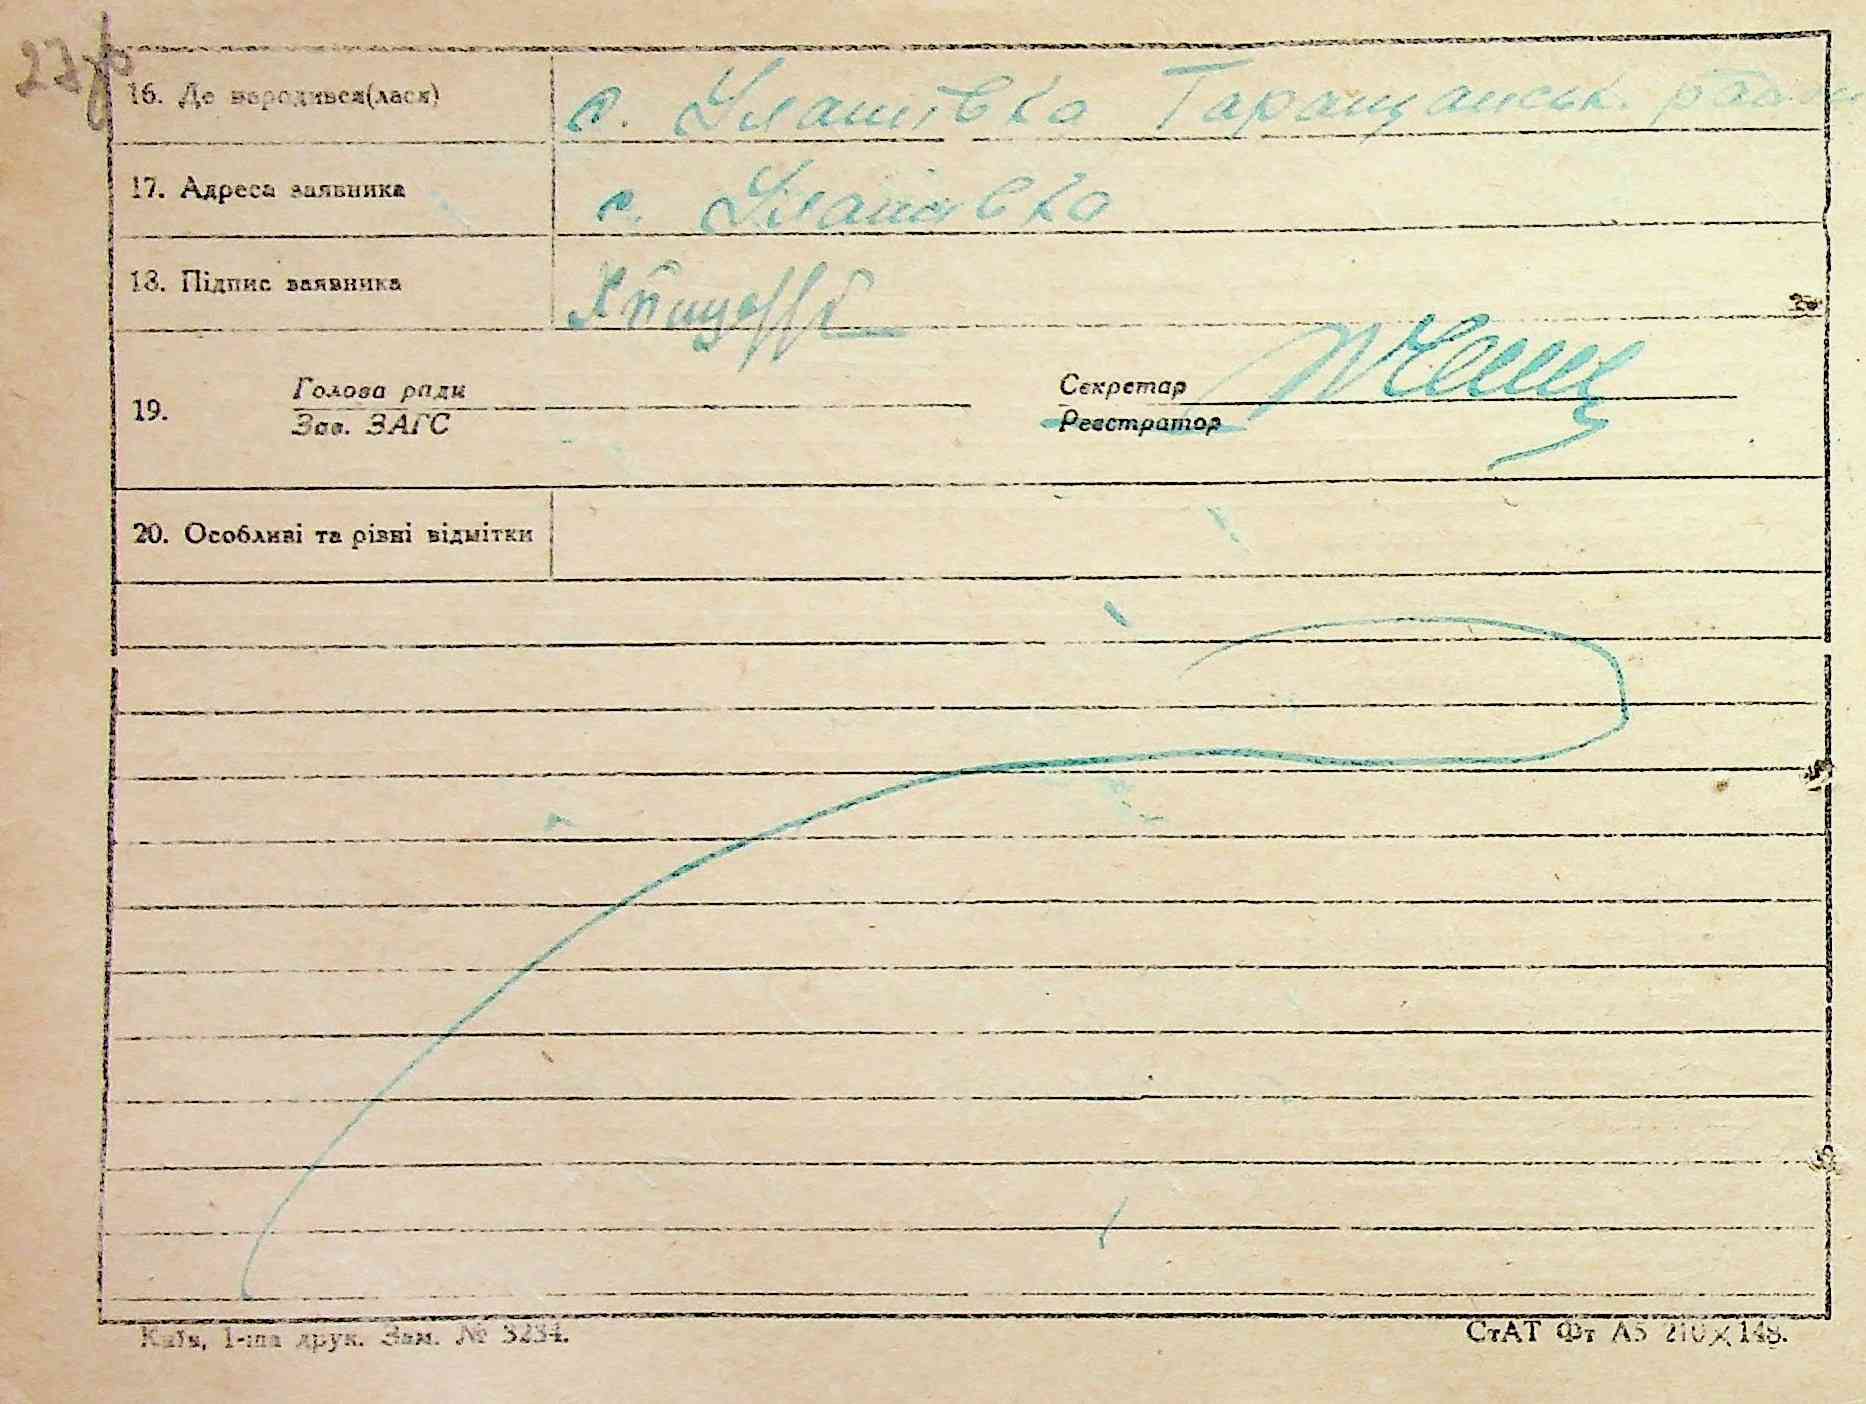 27
16. Де народився(лася) с. Улашівка Таращанськ. району
17. Адреса заявника с. Улашівка
18. Підпис заявника
19. Голова ради
Зав. ЗАГС
Секретар
Реєстратор
20. Особливі та різні відмітки
Київ, 1-ша друк. Зам. № 3234.
СтАТ Фт А5 210×148.